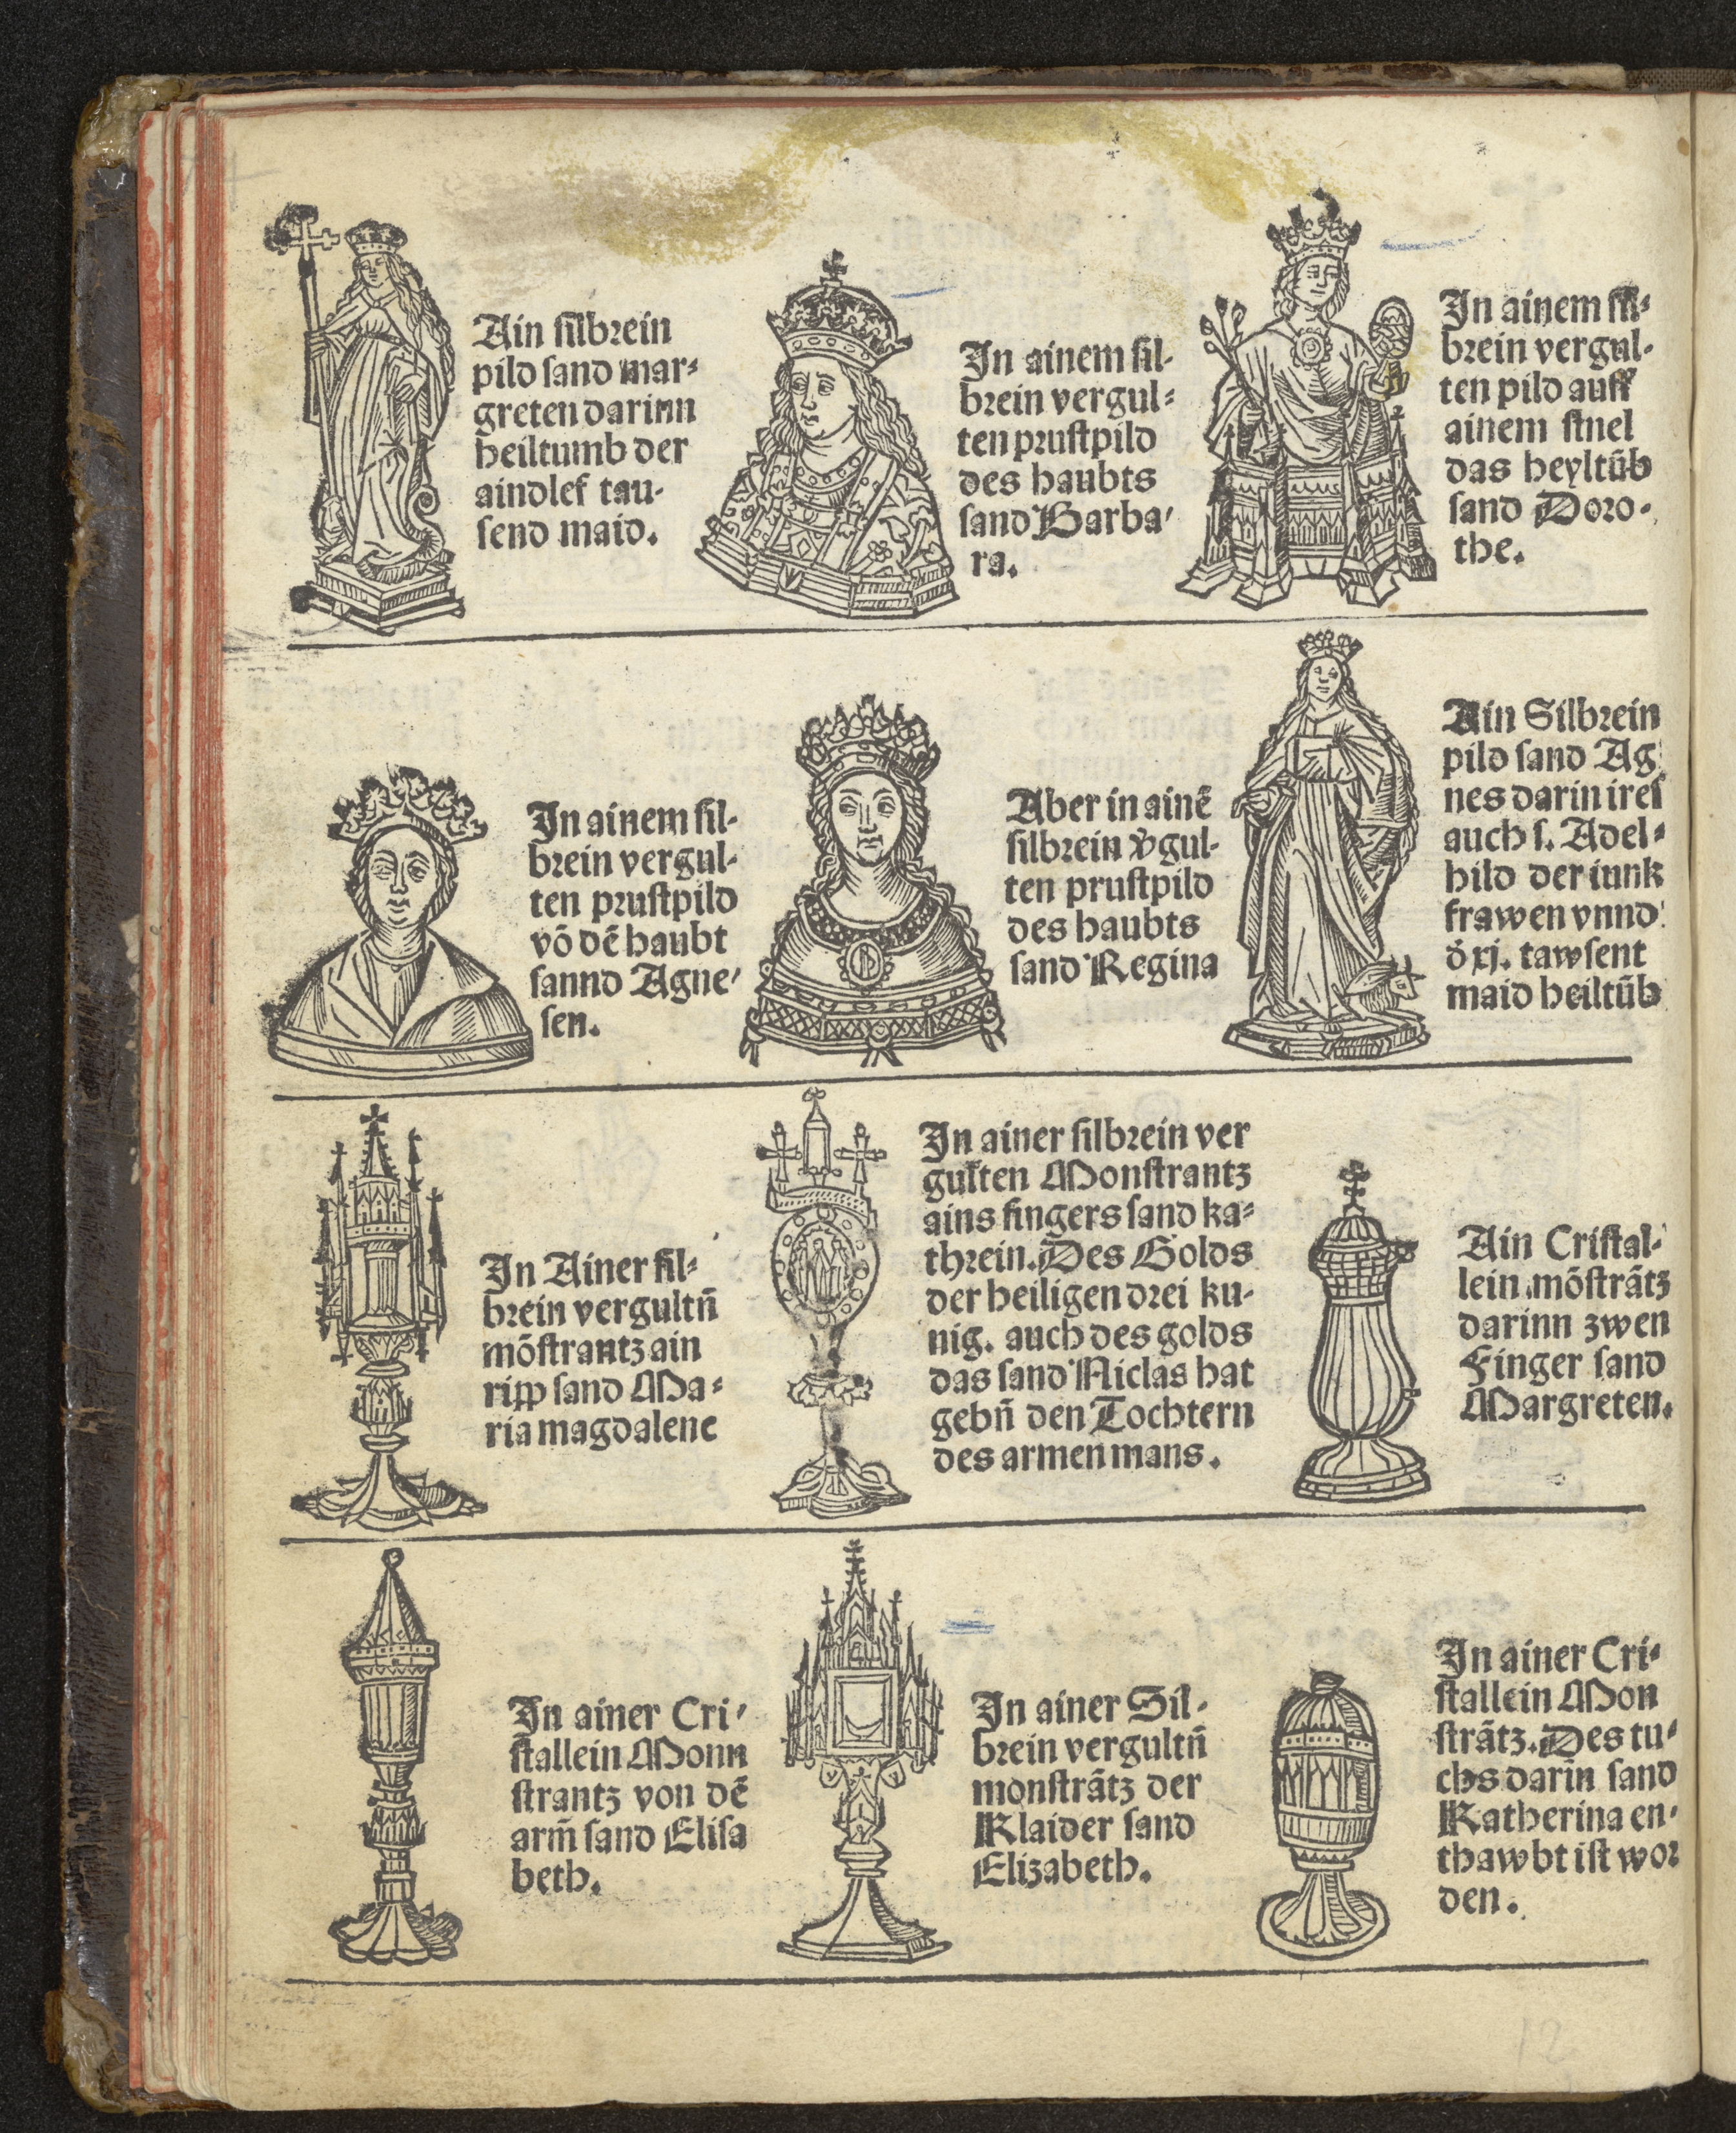 Ain silbrein
pild sand mar⸗
greten darinn
heiltumb der
aindlef tau-
send maid.
In ainem sil-
brein vergul⸗
ten prustpild
des haubts
sand Barba⸗
ra.
In ainem sil⸗
brein vergul-
ten pild auff
ainem stuel
das heyltūb
sand Doro-
the.
In ainem sil-
brein vergul-
ten prustpild
vō dē haubt
sannd Agne⸗
sen.
Aber in ainē
silbrein v̄gul-
ten prustpild
des haubts
sand Regina
Ain Silbrein
pild sand Ag
nes darin ires
auch s. Adel⸗
hild der iunk
frawen vnnd
d̄ xj. tawsent
maid heiltūb
In Ainer sil⸗
brein vergultn̄
mōstrantz ain
ripp sand Ma⸗
ria magdalene
In ainer silbrein ver
gulten Monstrantz
ains fingers sand ka⸗
threin. Des Golds
der heiligen drei ku-
nig. auch des golds
das sand Niclas hat
gebn̄ den Tochtern
des armen mans.
Ain Cristal-
lein mōstrātz
darinn zwen
Finger sand
Margreten.
In ainer Cri⸗
stallein Monn
strantz von dē
arm̄ sand Elisa
beth.
In ainer Sil-
brein vergultn̄
monstrātz der
Klaider sand
Elizabeth.
In ainer Cri⸗
stallein Mon
strātz. Des tu⸗
chs darin̄ sand
Katherina en-
thawbt ist wor
den.
12